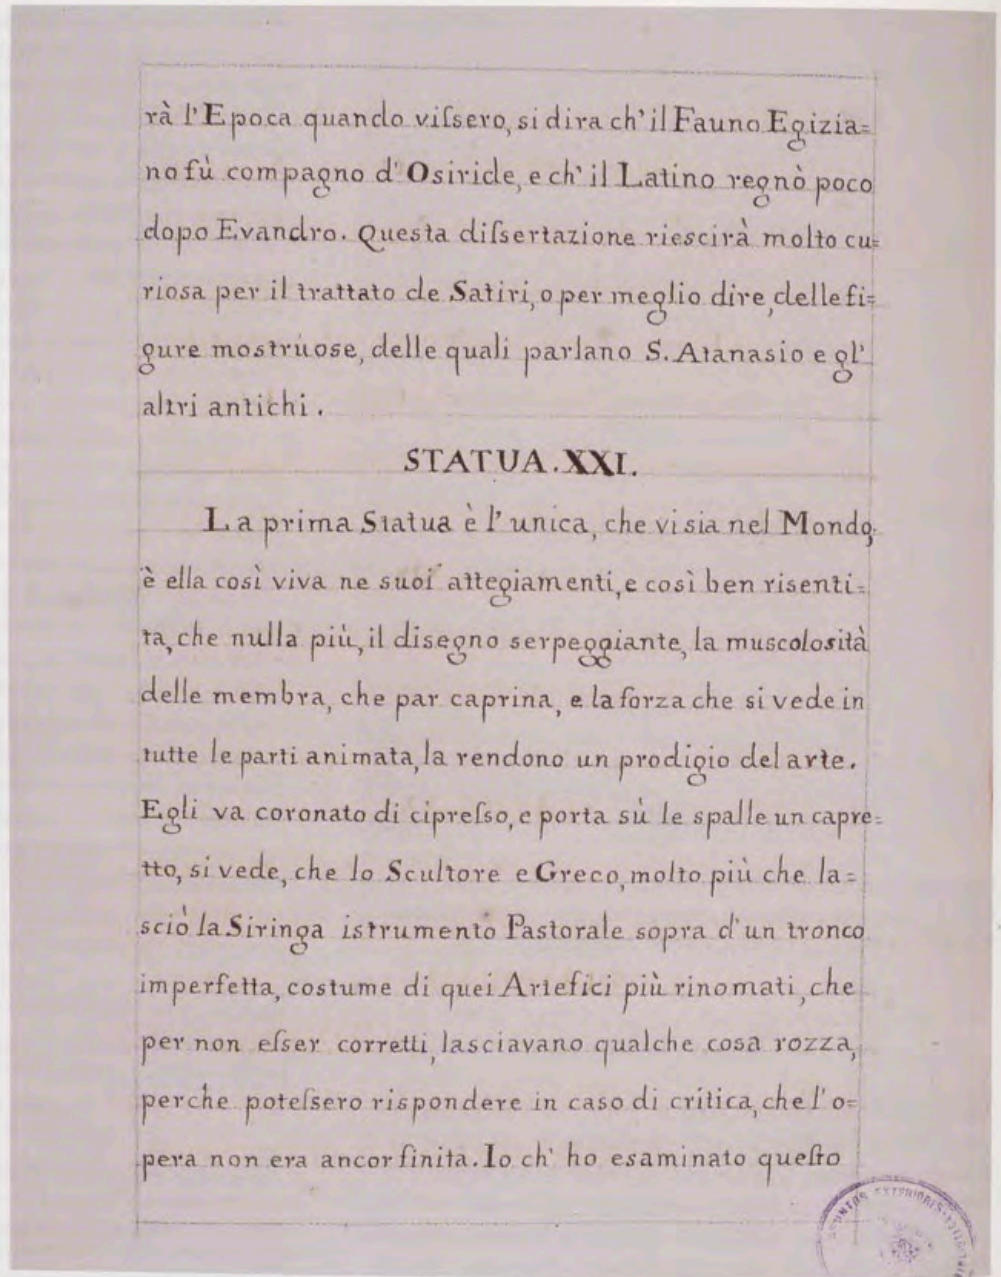 rà l'Epoca quando viſsero, si dira ch' il Fauno Egizia=
no fù compagno d' Osiride, e ch' il Latino regnò poco
dopo Evandro. Questa diſsertazione riescirà molto cu=
riosa per il trattato de Satiri, o per meglio dire, delle fi=
gure mostruose, delle quali parlano S. Atanasio e gl'
altri antichi.
STATUA. XXI.
La prima Statua è l' unica, che vi sia nel Mondo.
è ella così viva ne suoi attegiamenti, e così ben risenti=
ta, che nulla più, il disegno serpeggiante, la muscolosità
delle membra, che par caprina, e la forza che si vede in
tutte le parti animata, la rendono un prodigio del arte.
Egli va coronato di cipreſso, e porta sù le spalle un capre=
tto, si vede, che lo Scultore e Greco, molto più che la=
sciò la Siringa istrumento Pastorale sopra d' un tronco
imperfetta, costume di quei Artefici più rinomati, che
per non eſser corretti, lasciavano qualche cosa rozza,
perche poteſsero rispondere in caso di critica, che l' o=
pera non era ancor finita. Io ch' ho esaminato queſto
ASUNTOS EXTERIORES